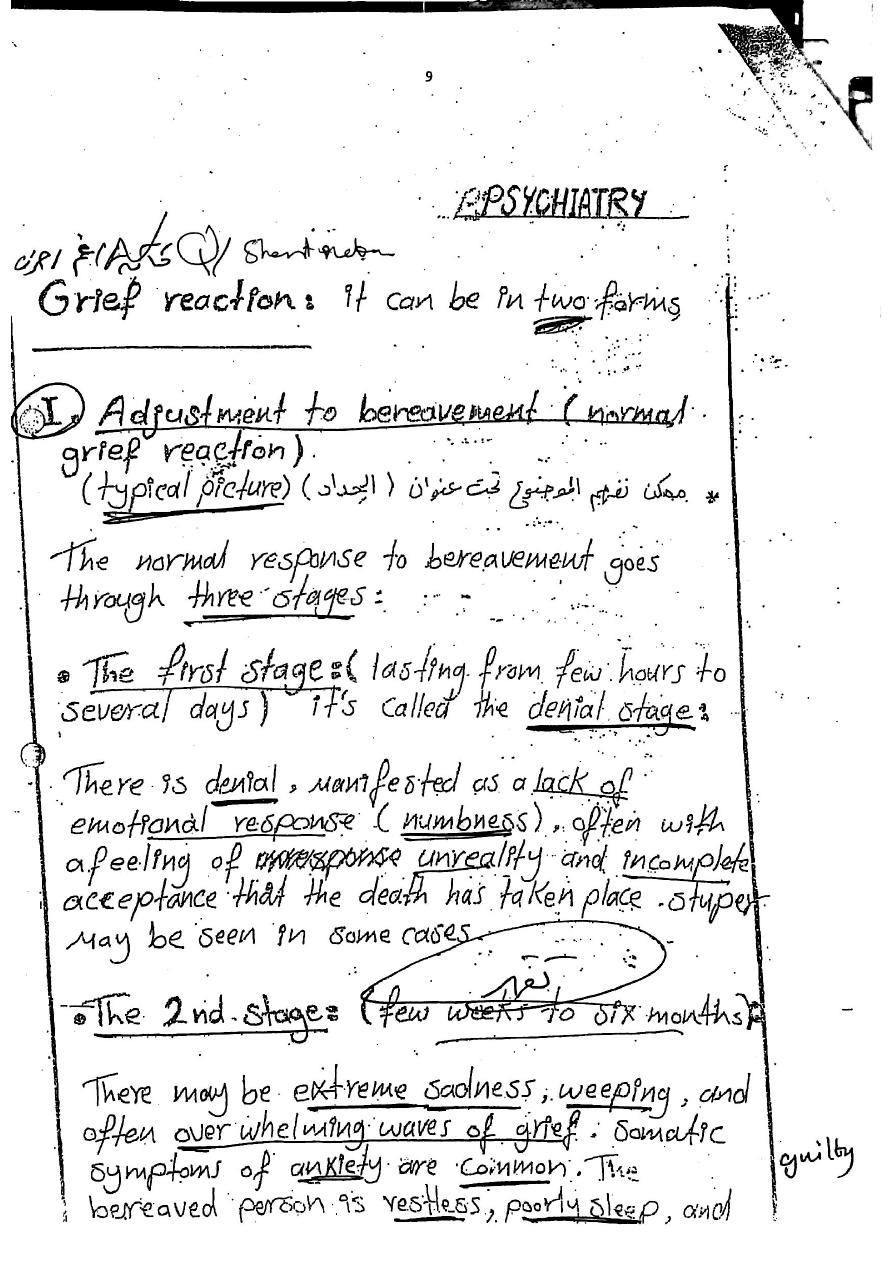 9
PSYCHIATRY
Grief reaction: it can be in two forms
I. Adjustment to bereavement (normal
grief reaction).
(typical picture) (الحداد) ممكن نفهم الموضوع تحت عنوان *
The normal response to bereavement goes
through three stages:
• The first stage:( lasting from few hours to
several days) it's called the denial stage:
There is denial, manifested as a lack of
emotional response (numbness), often with
a feeling of unreality and incomplete
acceptance that the death has taken place. stuper
may be seen in some cases.
• The 2nd. stage: (few weeks to six months):
There may be extreme sadness, weeping, and
often over whelming waves of grief. Somatic
symptoms of anxiety are common. The
guilty
bereaved person is restless, poorly sleep, and